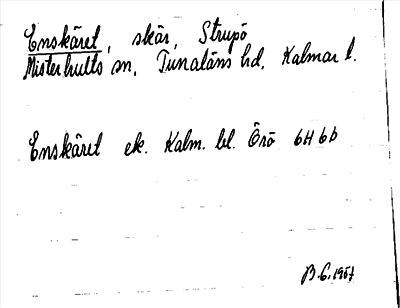 Enskäret, skär, Strupö
Misterhults sn, Tunaläns hd, Kalmar l.
Enskäret ek. Kalm. bl. Örö 6H 6b
B.G. 1957